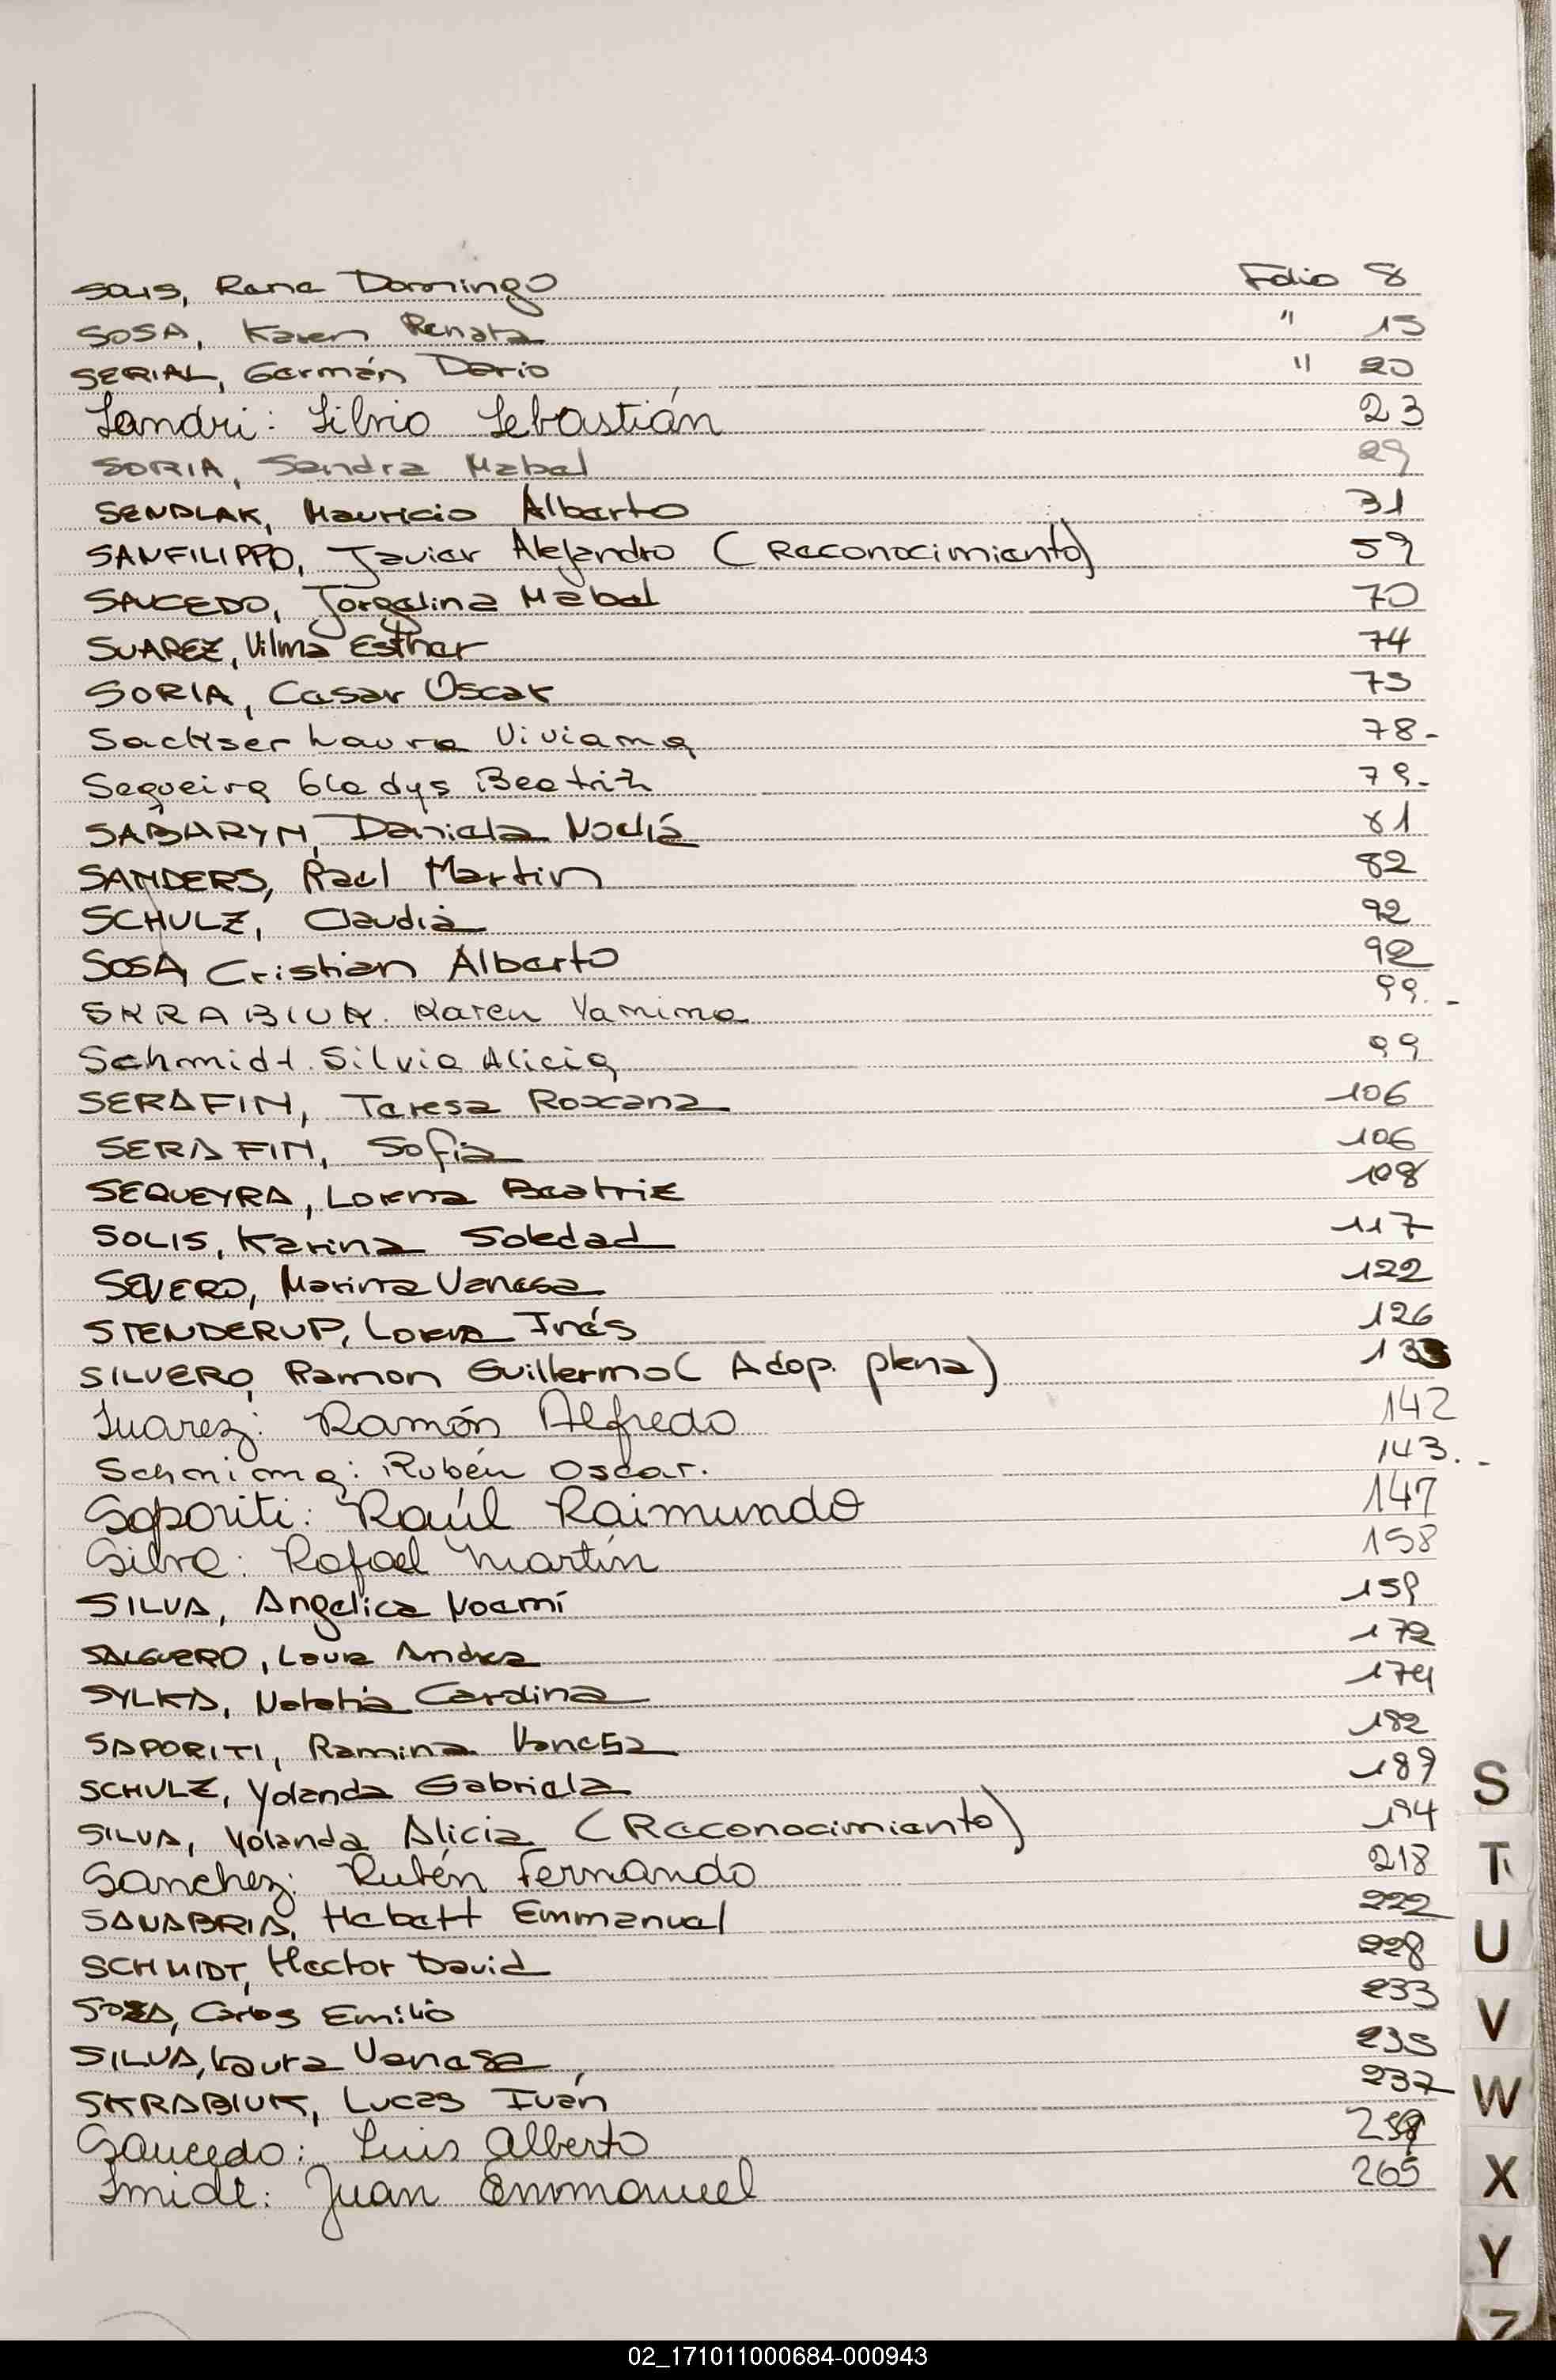 SOLIS, Rene Domingo Folio 8
SOSA, Karen Renata " 15
SERIAL, Germán Dario " 20
Sandri: Silvio Sebastián 23
SORIA, Sandra Mabel 29
SENDLAK, Mauricio Alberto 31
SANFILIPPO, Javier Alejandro (Reconocimiento) 59
SAUCEDO, Jorgelina Mabel 70
SUAREZ, Vilma Esther 74
SORIA, Cesar Oscar 75
Sackser Laura Viviana 78.-
Sequeira Gladys Beatriz 79.-
SABARYN, Daniela Noeliá 81
SANDERS, Raul Martin 82
SCHULZ, Claudia 92
SOSA, Cristian Alberto 92
SKRABIUK. Karen Yamina 99.-
Schmidt. Silvia Alicia 99
SERAFIN, Teresa Roxana 106
SERAFIN, Sofia 106
SEQUEYRA, Lorena Beatriz 108
SOLIS, Karina Soledad 117
SEVERO, Marina Vanesa 122
STENDERUP, Lorena Inés 126
SILVERO, Ramon Guillermo (Adop. plena) 133
Suarez: Ramón Alfredo 142
Rubén Oscar. 143.-
Saporiti: Raúl Raimundo 147
Silva: Rafael Martín 158
SILVA, Angelica Noemí 159
SALGUERO, Laura Andrea 172
SYLKA, Natalia Carolina 174
SAPORITI, Ramina Vanesa 182
SCHULZ, Yolanda Gabriela 189
SILVA, Yolanda Alicia (Reconocimiento) 194
Sanchez: Rubén Fernando 218
SANABRIA, Emmanuel 222
SCHMIDT, Hector David 228
SOSA, Carlos Emilio 233
SILVA, Laura Vanesa 235
SKRABIUK, Lucas Iván 237
Saucedo: Luis Alberto
Smidt: Juan Emmanuel 265
S
T
U
V
W
X
Y
Z
02_171011000684-000943